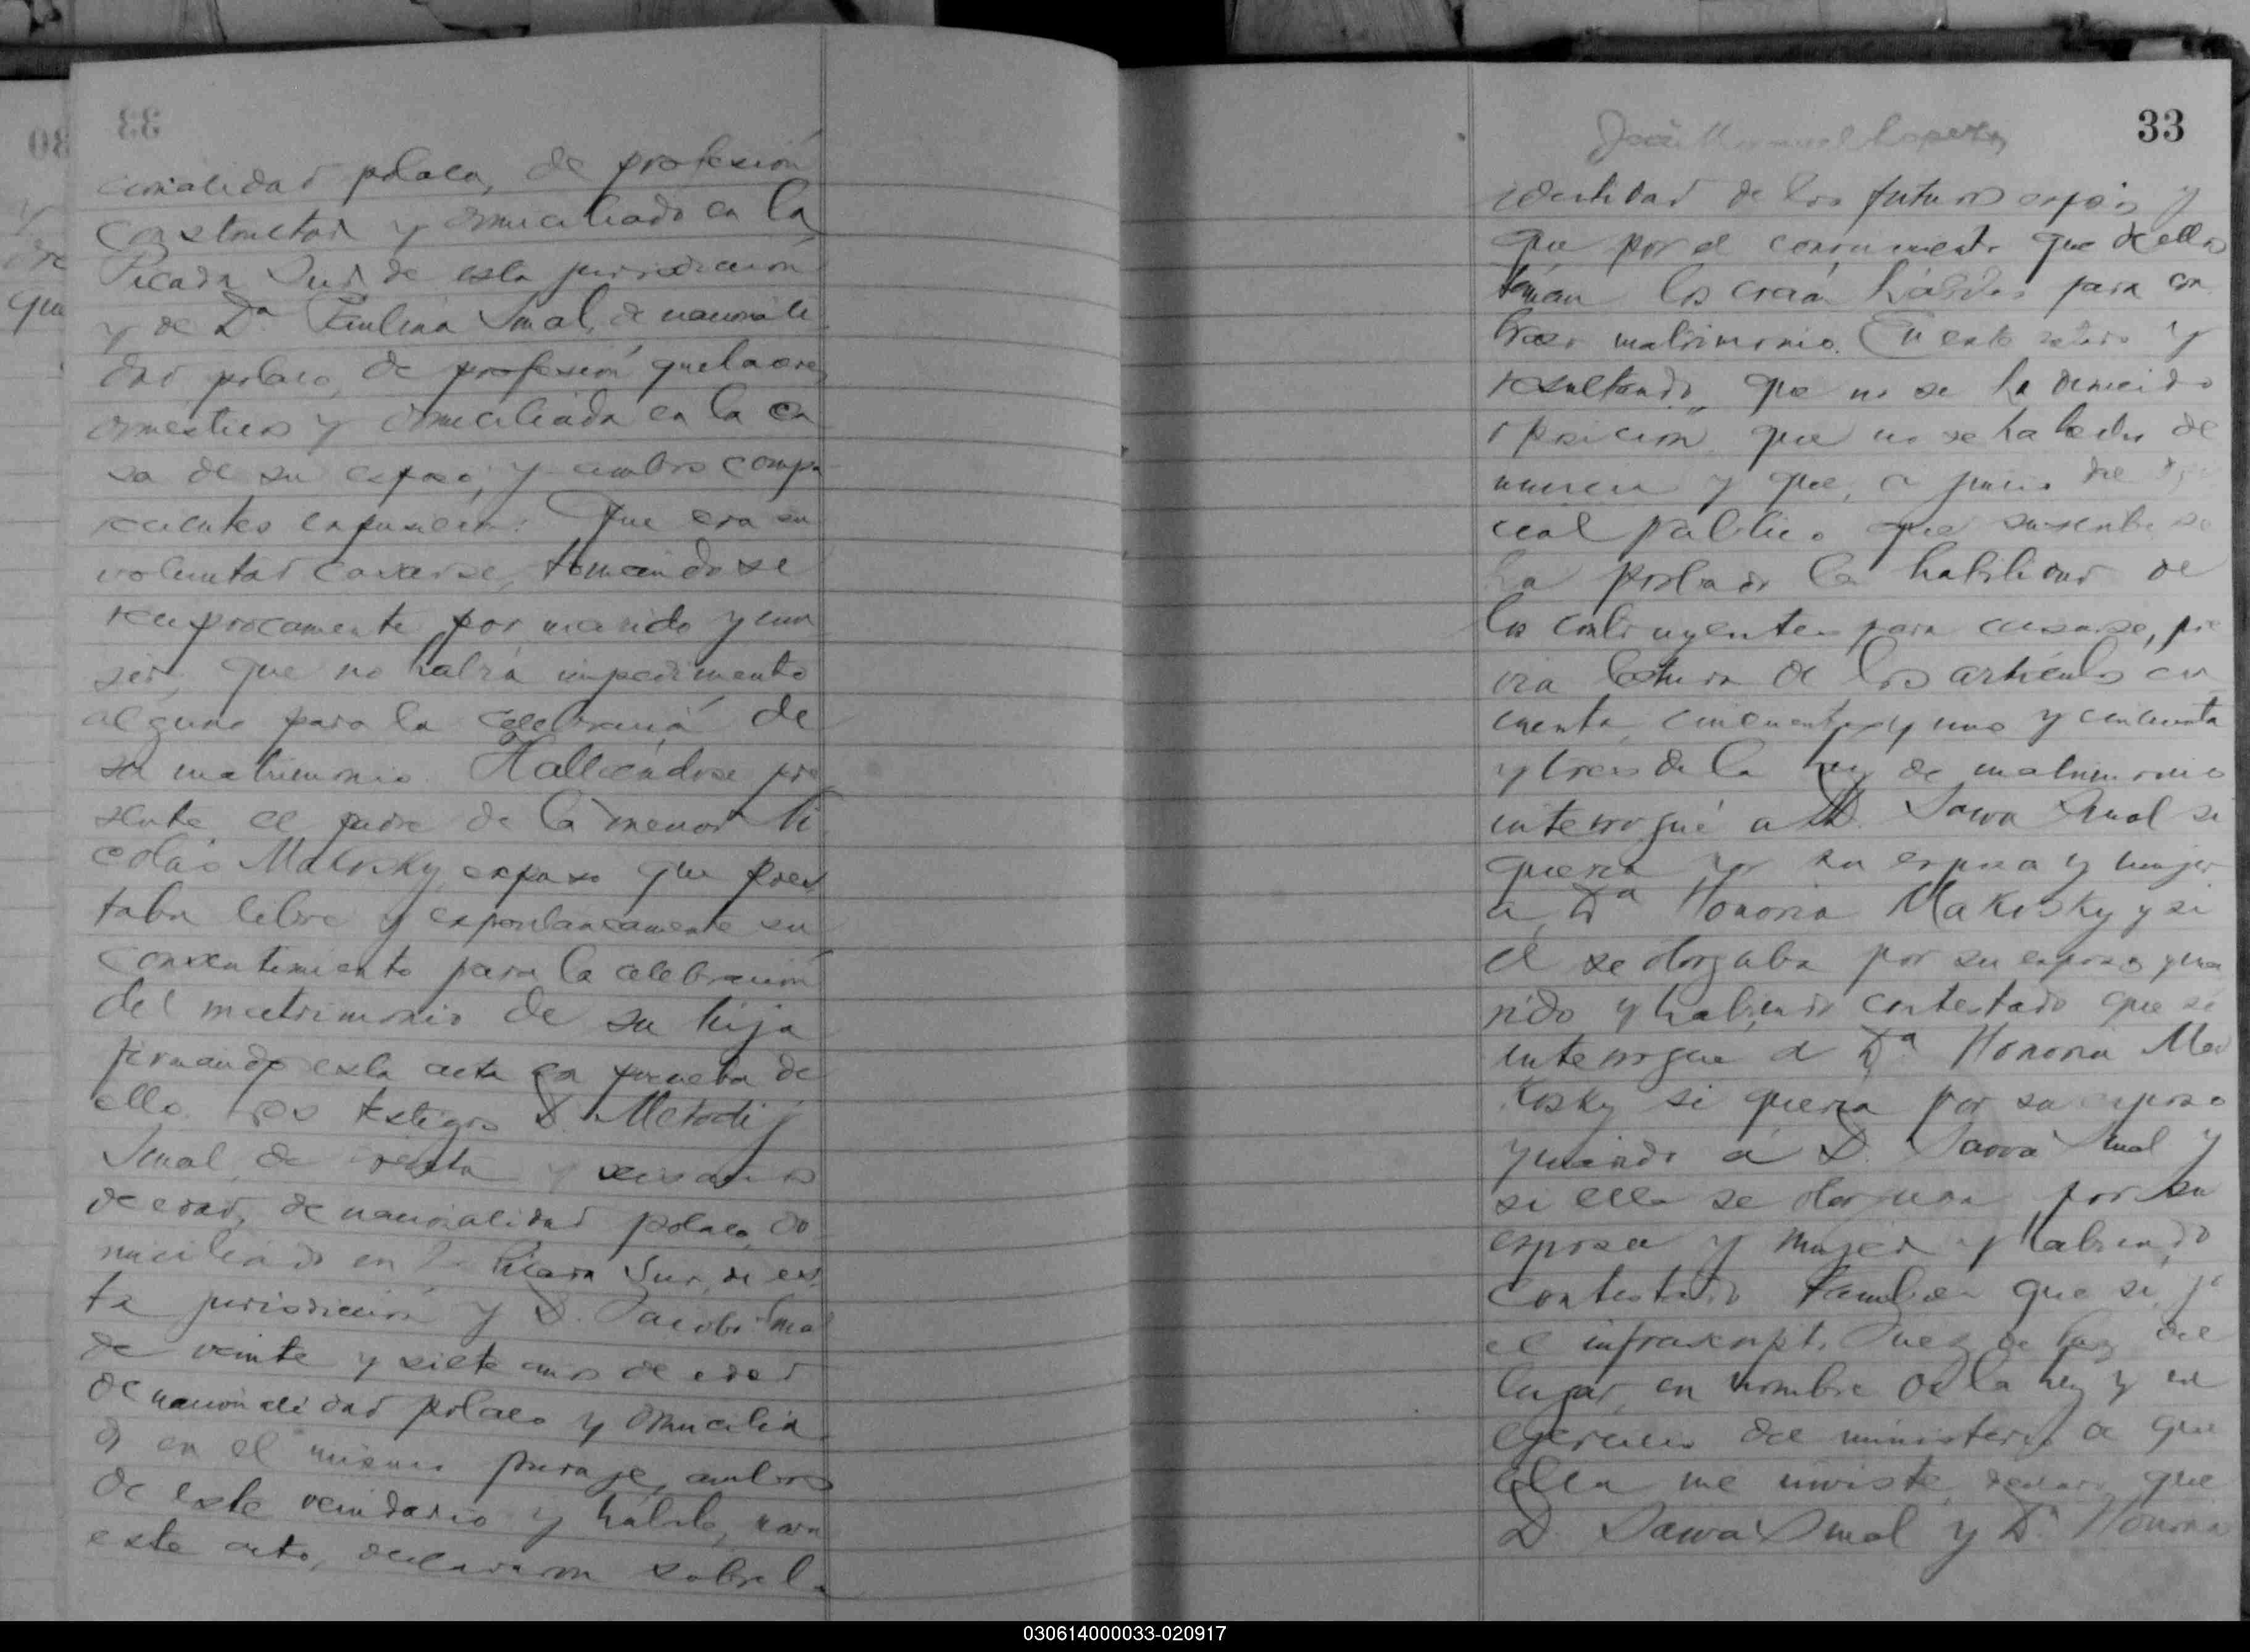 cionalidad polaca, de profesión
constructor y domiciliado en la
Picada Sur de esta jurisdiccion
y de Da Paulina Smal, de nacionali
dad polaca, de profesión quehaceres
domésticos y domiciliada en la ca
sa de su esposo; y ambos compa
recientes expusieron: Que era su
voluntad casarse, tomándose
reciprocamente por marido y mu
jer, que no había impedimento
alguno para la celebración de
su matrimonio. Hallándose pre
sente el padre de la menor Ni
colás Makosky expuso que pres
taba libre y espontaneamente su
consentimiento para la celebración
del matrimonio de su hija
firmando esta acta en prueba de
ello. Los testigos D. Metodij
Smal, de treinta y seis años
de edad, de nacionalidad polaca, do
miciliado en la Picada Sur, de es
ta jurisdicción y D. Jacobo Smal
de veinte y siete años de edad
de nacionalidad polaca y domicilia
do en el mismo paraje, ambos
de este vecindario y hábiles para
este acto, declararon sobre la
33
José Manuel
identidad de los futuros esposos y
que por el conocimiento que de ellos
tenian los creían hábiles para con
traer matrimonio. En este estado y
resultando, que no se ha deducido
oposicion que no se ha hecho de
nuncia y que, a juicio del ofi
cial público que suscribe se
ha probado la habilidad de
los contrayentes para casarse, pre
via lectura de los artículos cin
cuenta, cincuenta y uno y cincuenta
y tres de la ley de matrimonio
interrogué a D. Sawa Smal si
queria por su esposa y mujer
a Da Honoria Makosky y si
el se otorgaba por su esposo y ma
rido y habiendo contestado que sí
interrogue a Da Honoria Ma
kosky si quería por su esposo
y marido á D. Sawa Smal y
si ella se otorgaba por su
esposa y mujer y habiendo
contestado tambien que si, yo
el infrascripto Juez de Paz del
lugar, en nombre de la ley y en
egercicio del ministerio a que
ella me inviste declaro que
D. Sawa Smal y Da Honoria
030614000033-020917